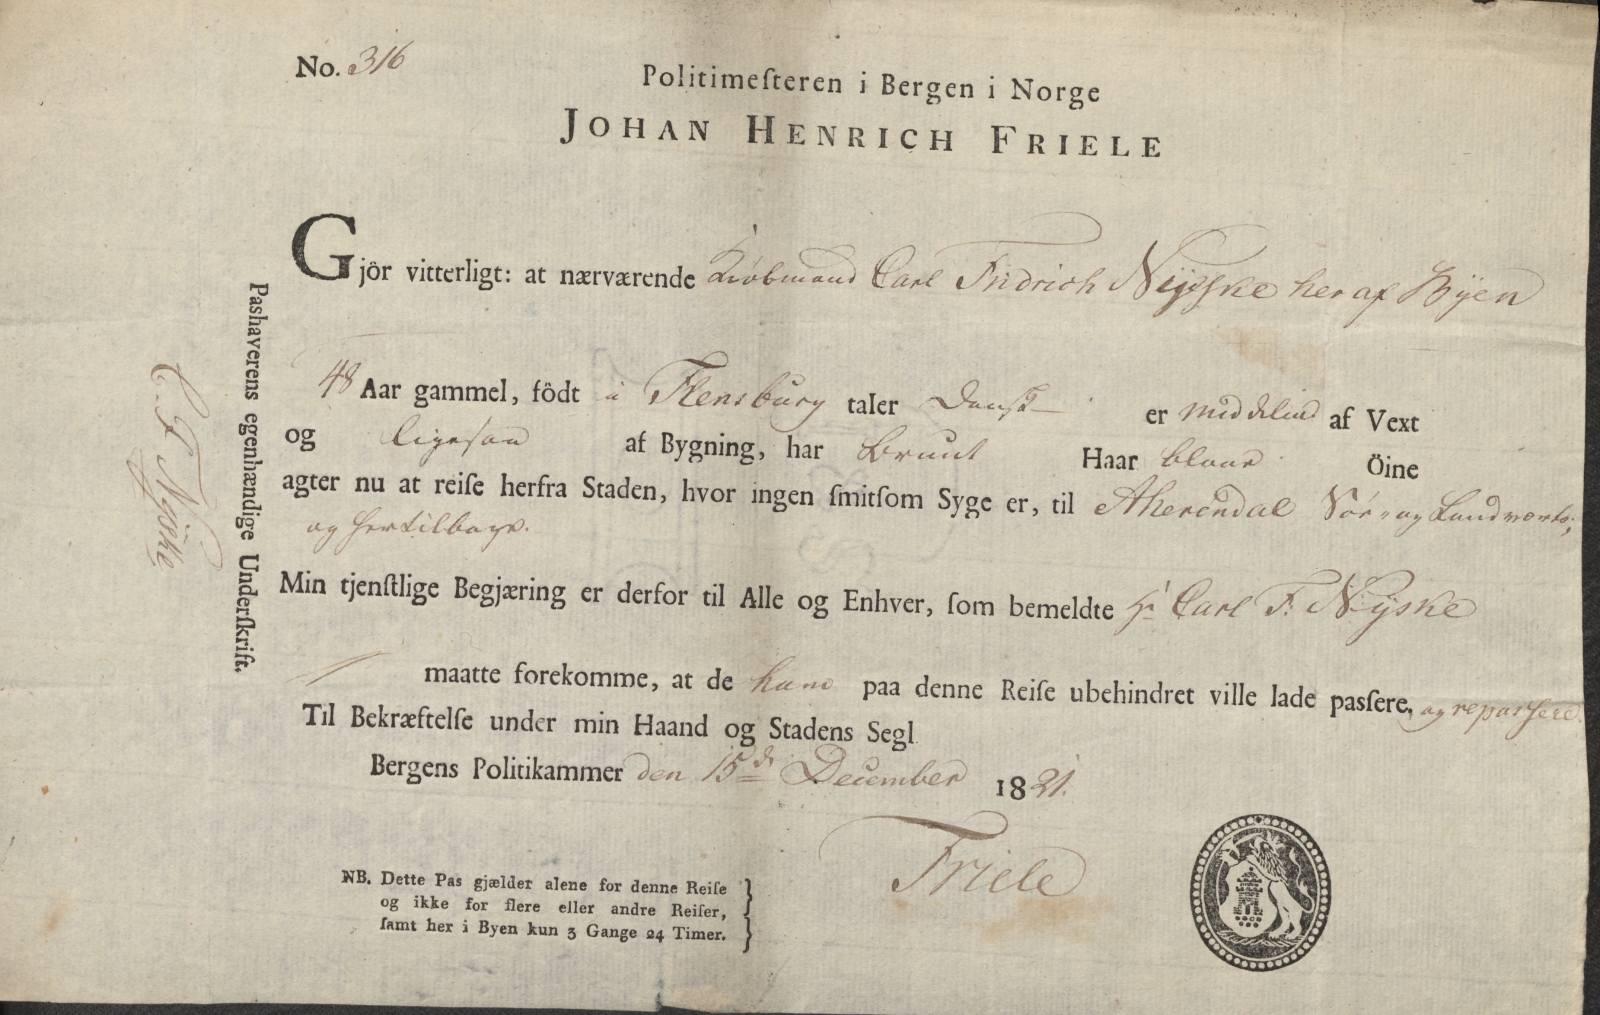 No. 316
Politimeſteren i Bergen i Norge
JOHAN HENRICH FRIELE
Gjör vitterligt: at nærværende Kiöbmand Carl Fridrich Nÿeske her af Bÿen
48 Aar gammel, födt i Flensburg taler Dansk er middelind af Vext
og ligesaa af Bygning, har Bruut Haar blaae Öine
agter nu at reiſe herfra Staden, hvor ingen ſmitſom Syge er, til Aherendal Söe- og Landværts,
og her tilbage.
Min tjenſtlige Begjæring er derfor til Alle og Enhver, ſom bemeldte Hr Carl F. Nÿske
maatte forekomme, at de ham paa denne Reiſe ubehindret ville lade paſſere, og repassere.
Til Bekræftelſe under min Haand og Stadens Segl
Bergens Politikammer den 15de December 1821.
Friele
NB. Dette Pas gjælder alene for denne Reiſe
og ikke for flere eller andre Reiſer,
ſamt her i Byen kun 3 Gange 24 Timer.
Pashaverens egenhændige Underſkrift.
C. F. Nÿske